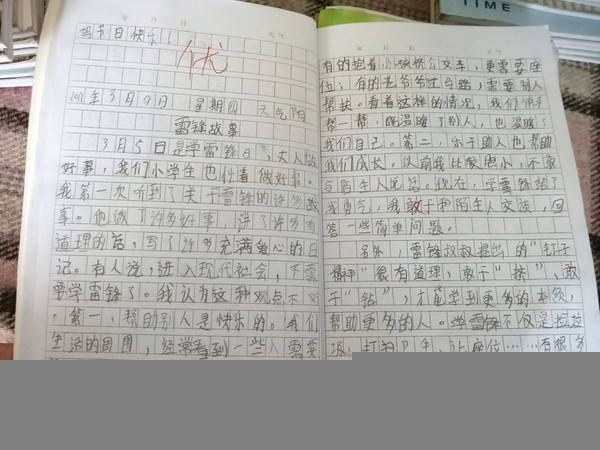 年 月 日 天气
节日快乐！
优
2011年3月9日 星期四 天气阴
雷锋故事
3月5日是学雷锋日，大人做
好事，我们小学生也忙着做好事。
我第一次听到了关于雷锋的许多故
事。他做了许多好事，讲了许多有
道理的话，写了许多充满爱心的日
记。有人说，进入现代社会，不需
要学雷锋了。我认为这种观点不对
，第一，帮助别人是快乐的。我们
生活的周围，经常看到一些人需要
年 月 日 天气
有的抱着小孩挤公交车，更需要座
位；有的老爷爷过马路，需要别人
帮扶。看着这样的情况，我们伸手
帮一帮，既温暖了别人，也温暖了
我们自己。第二，乐于助人也帮助
我们成长。以前我比较胆小，不敢
与陌生人说话。现在，学雷锋给了
我勇气，我敢于和陌生人交谈，回
答一些简单问题。
另外，雷锋叔叔提出的“钉子
精神”很有道理，敢于“挤”、敢
于“钻”，才能学到更多的本领，
帮助更多的人。学雷锋不仅是捡垃
圾、打扫卫生、让座位……有很多
TIME